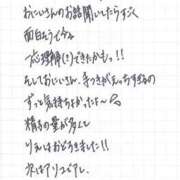 おにいさんのお話聞いてたらすごく
面白そうでさぁ
一応理解(?)できたかもっ!!
そしておにいさん、手つきがえっちすぎるの
ずっと気持ちよかったよ〜
精子の量が多くて
りえはおどろきました!!
次はアリコデレ。